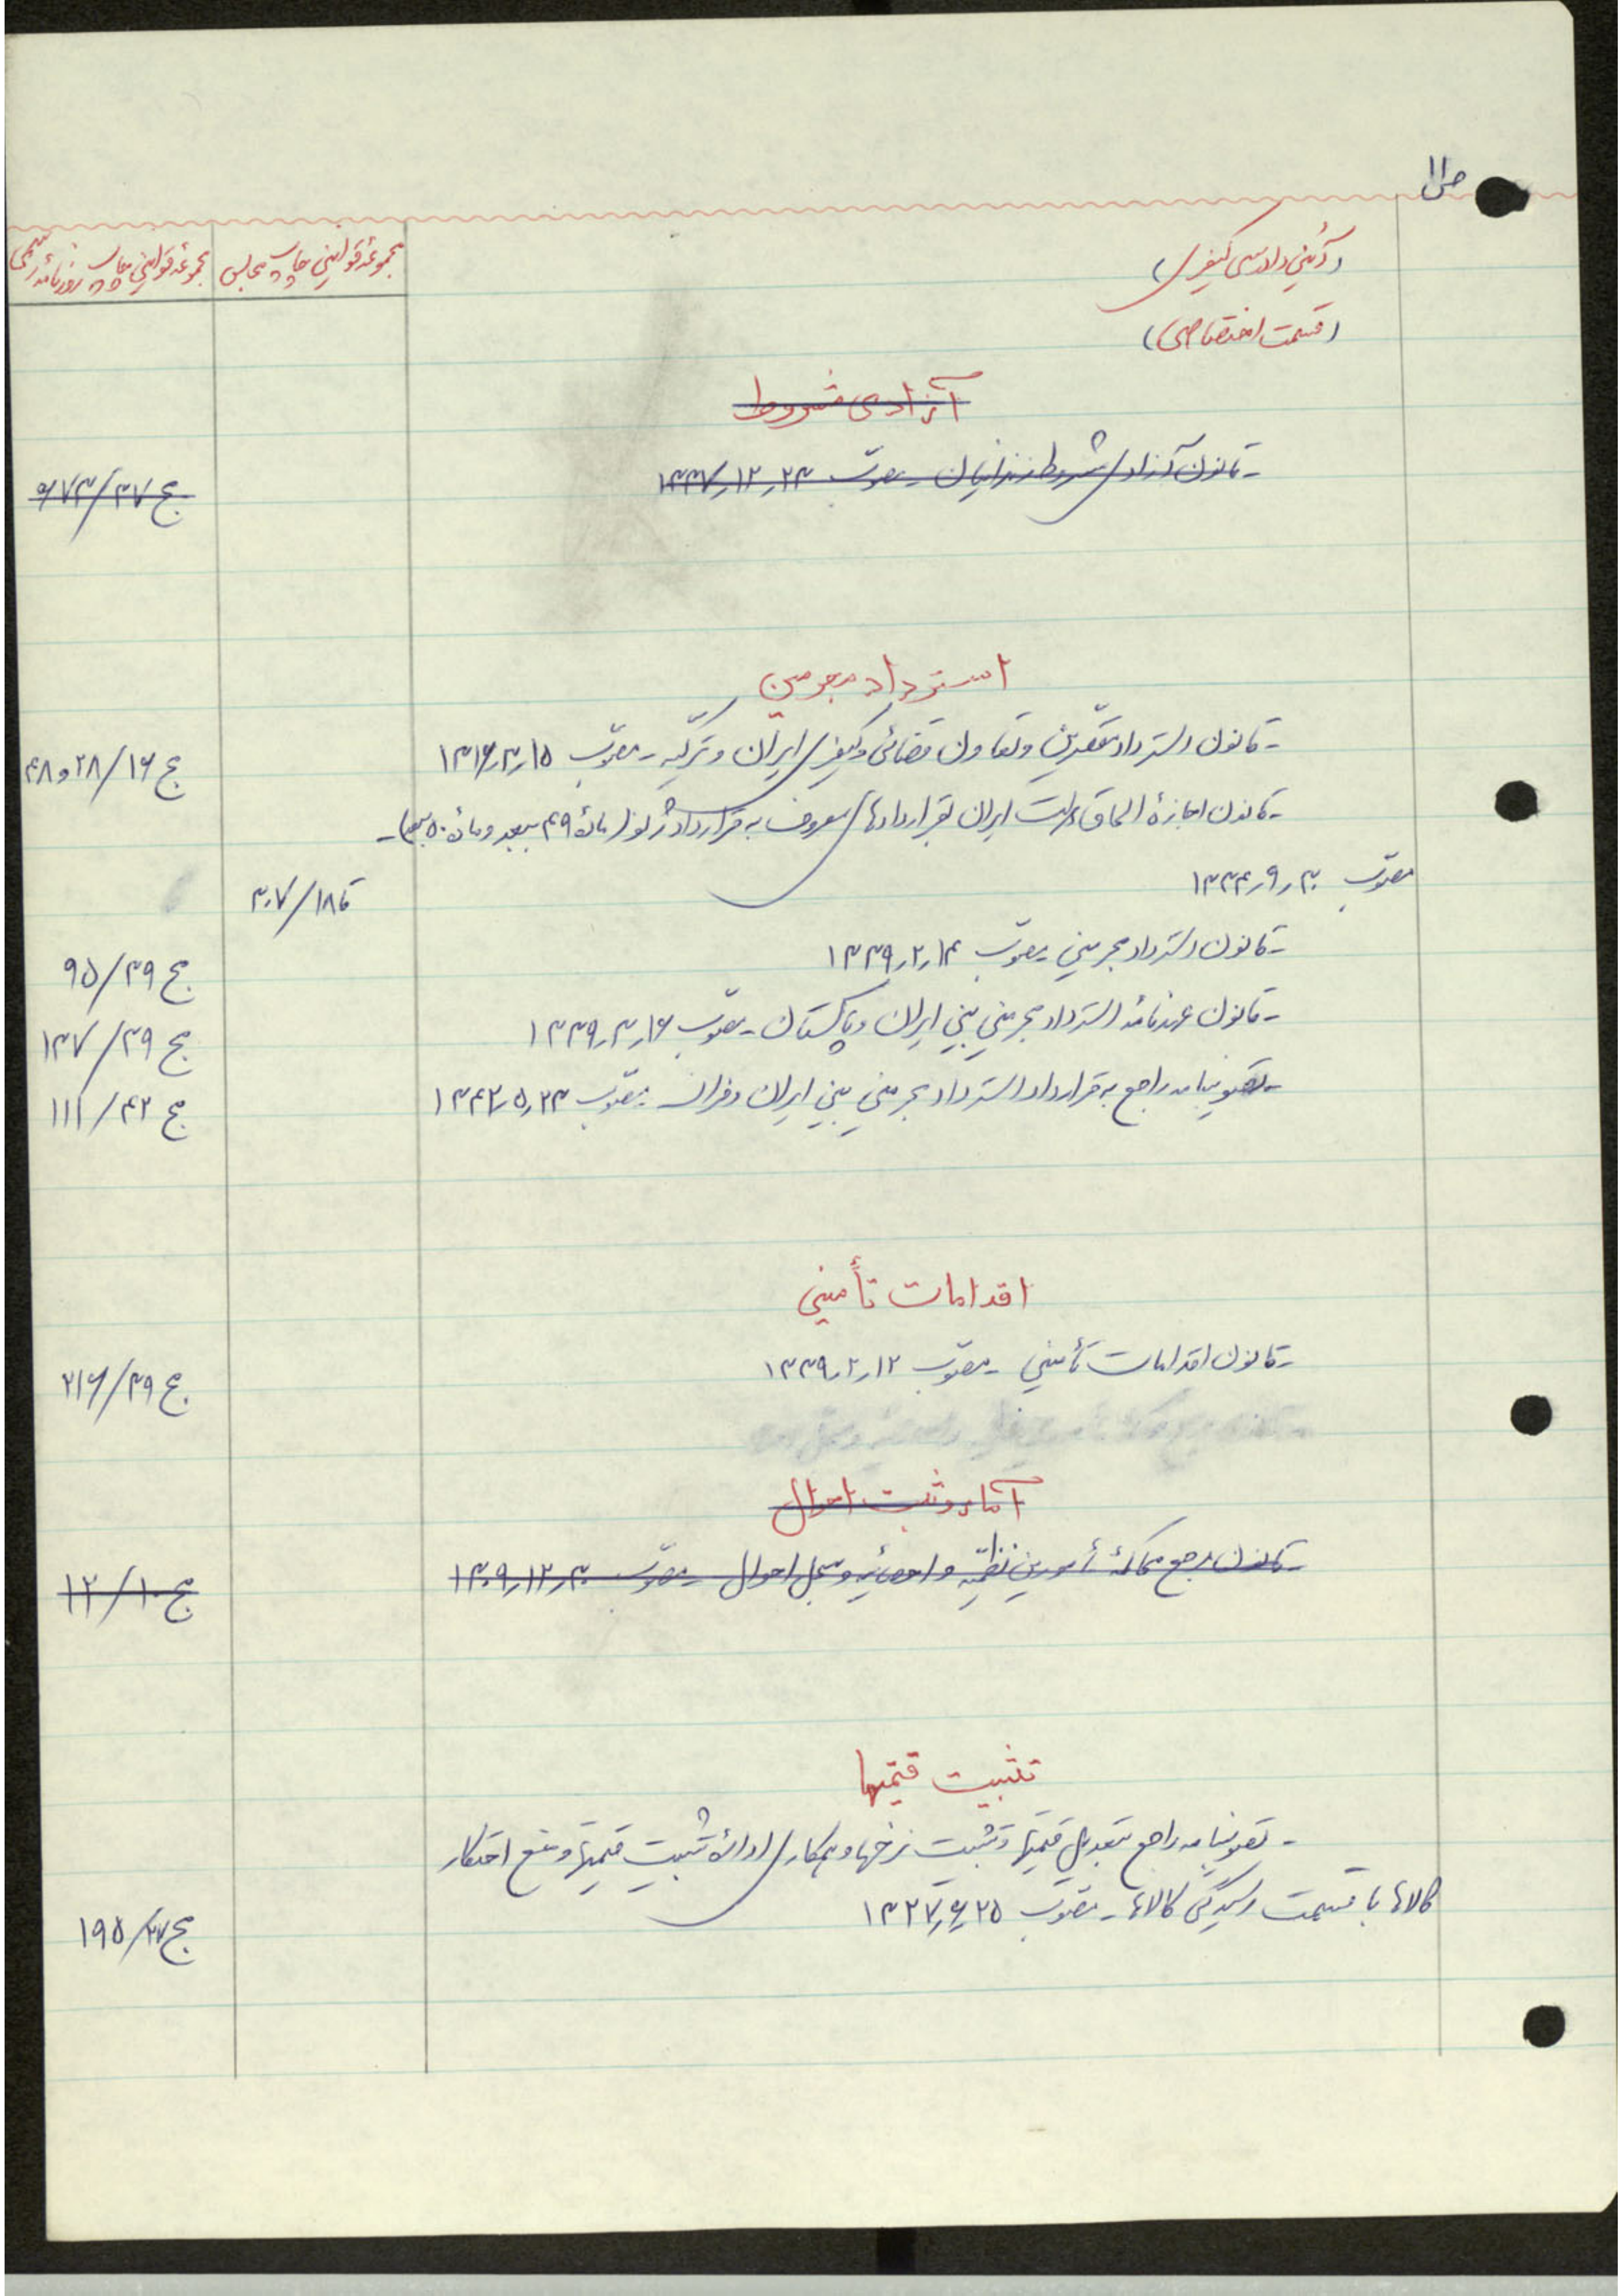 ص ۱۱
(آئین دادرسی کیفری)
مجموعه قوانین چاپ مجلس
مجموعه قوانین چاپ روزنامه رسمی
(قسمت اختصاصی)
آزادی مشروط
-قانون آزادی مشروط زندانیان - مصوّب ۱۳۳۷٫۱۲٫۲۳
ج ۳۷/۶۷۳
استرداد مجرمین
-قانون استرداد مقصّرین و تعاون قضائی و کیفری ایران و ترکیّه - مصوّب ۱۳۱۶٫۳٫۱۵
ج ۱۶/۲۸ و ۴۸
-قانون اجازهٔ الحاق دولت ایران بقراردادهای معروف به قرارداد ژنو (مادهٔ ۴۹ ببعد و مادهٔ ۵۰ ببعد) -
مصوّب ۱۳۳۴٫۹٫۳۰
تا ۱۸/۳۰۷
-قانون استرداد مجرمین - مصوّب ۱۳۳۹٫۲٫۱۴
ج ۳۹/۹۵
-قانون عهدنامهٔ استرداد مجرمین بین ایران و پاکستان - مصوّب ۱۳۳۹٫۳٫۱۶
ج ۳۹/۱۳۷
-تصویبنامه راجع به قرارداد استرداد مجرمین بین ایران و فرانسه مصوّب ۱۳۴۲٫۵٫۲۳
ج ۴۲/۱۱۱
اقدامات تأمینی
-قانون اقدامات تأمینی - مصوّب ۱۳۳۹٫۲٫۱۲
ج ۳۹/۲۱۶
آمار و ثبت احوال
-قانون مرجع محاکمهٔ مأمورین نظمیّه و احصائیه و سجل احوال - مصوّب ۱۳۰۹٫۱۲٫۳۰
ج ۱۰/۱۲
تثبیت قیمتها
- تصویبنامه راجع بتعدیل قیمتها و تثبیت نرخها و همکاری ادارهٔ تثبیت قیمتها و منع احتکار
کالاها با قسمت رسیدگی کالاها - مصوّب ۱۳۲۷٫۶٫۲۵
ج ۲۷/۱۹۵